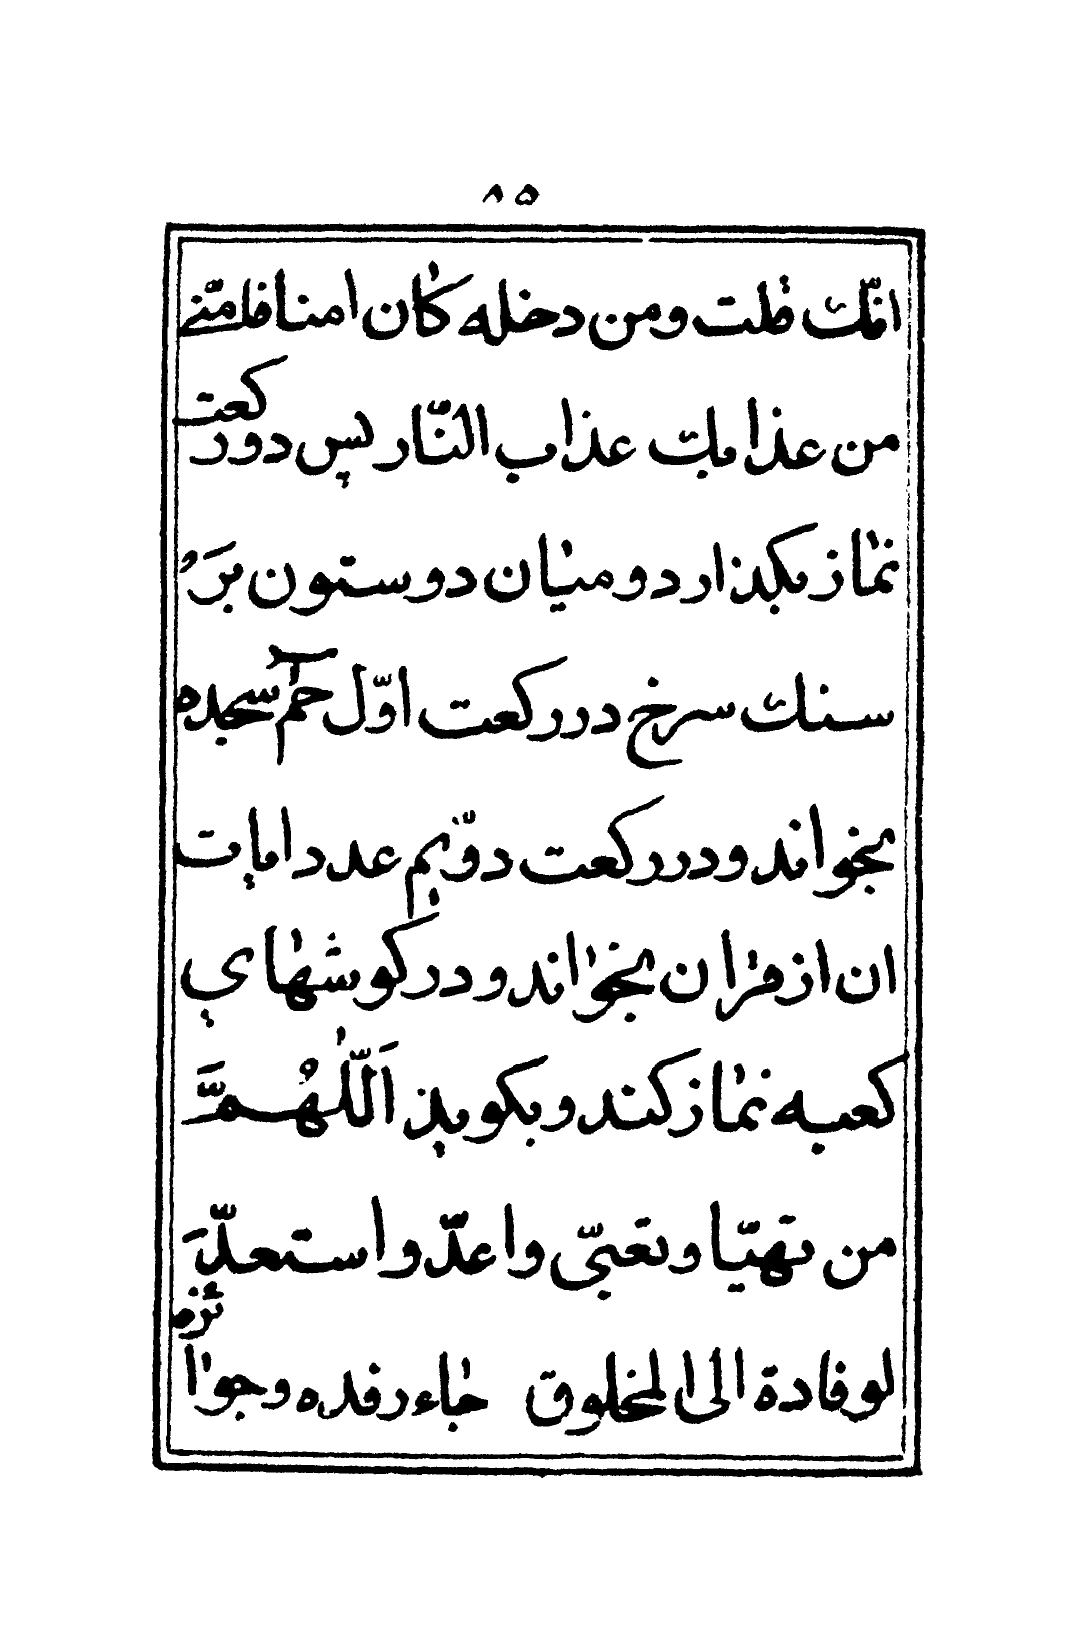 ۸۵
انّك قلت ومن دخله كان امنا فامنّي
من عذابك عذاب النّار پس دو ركعت
نماز بكذارد وميان دوستون بَر
سنك سرخ در ركعت اوّل حٰمٓ سجده
بخواند ودر ركعت دوّيم عدد ايات
ان از قران بخواند ودر كوشهاي
كعبه نماز كند وبكويد اَللّٰهُمَّ
من تهيّا وتعبّى واعدّ واستعدَّ
لوفادة الى المخلوق رجاء رفده وجوائزه